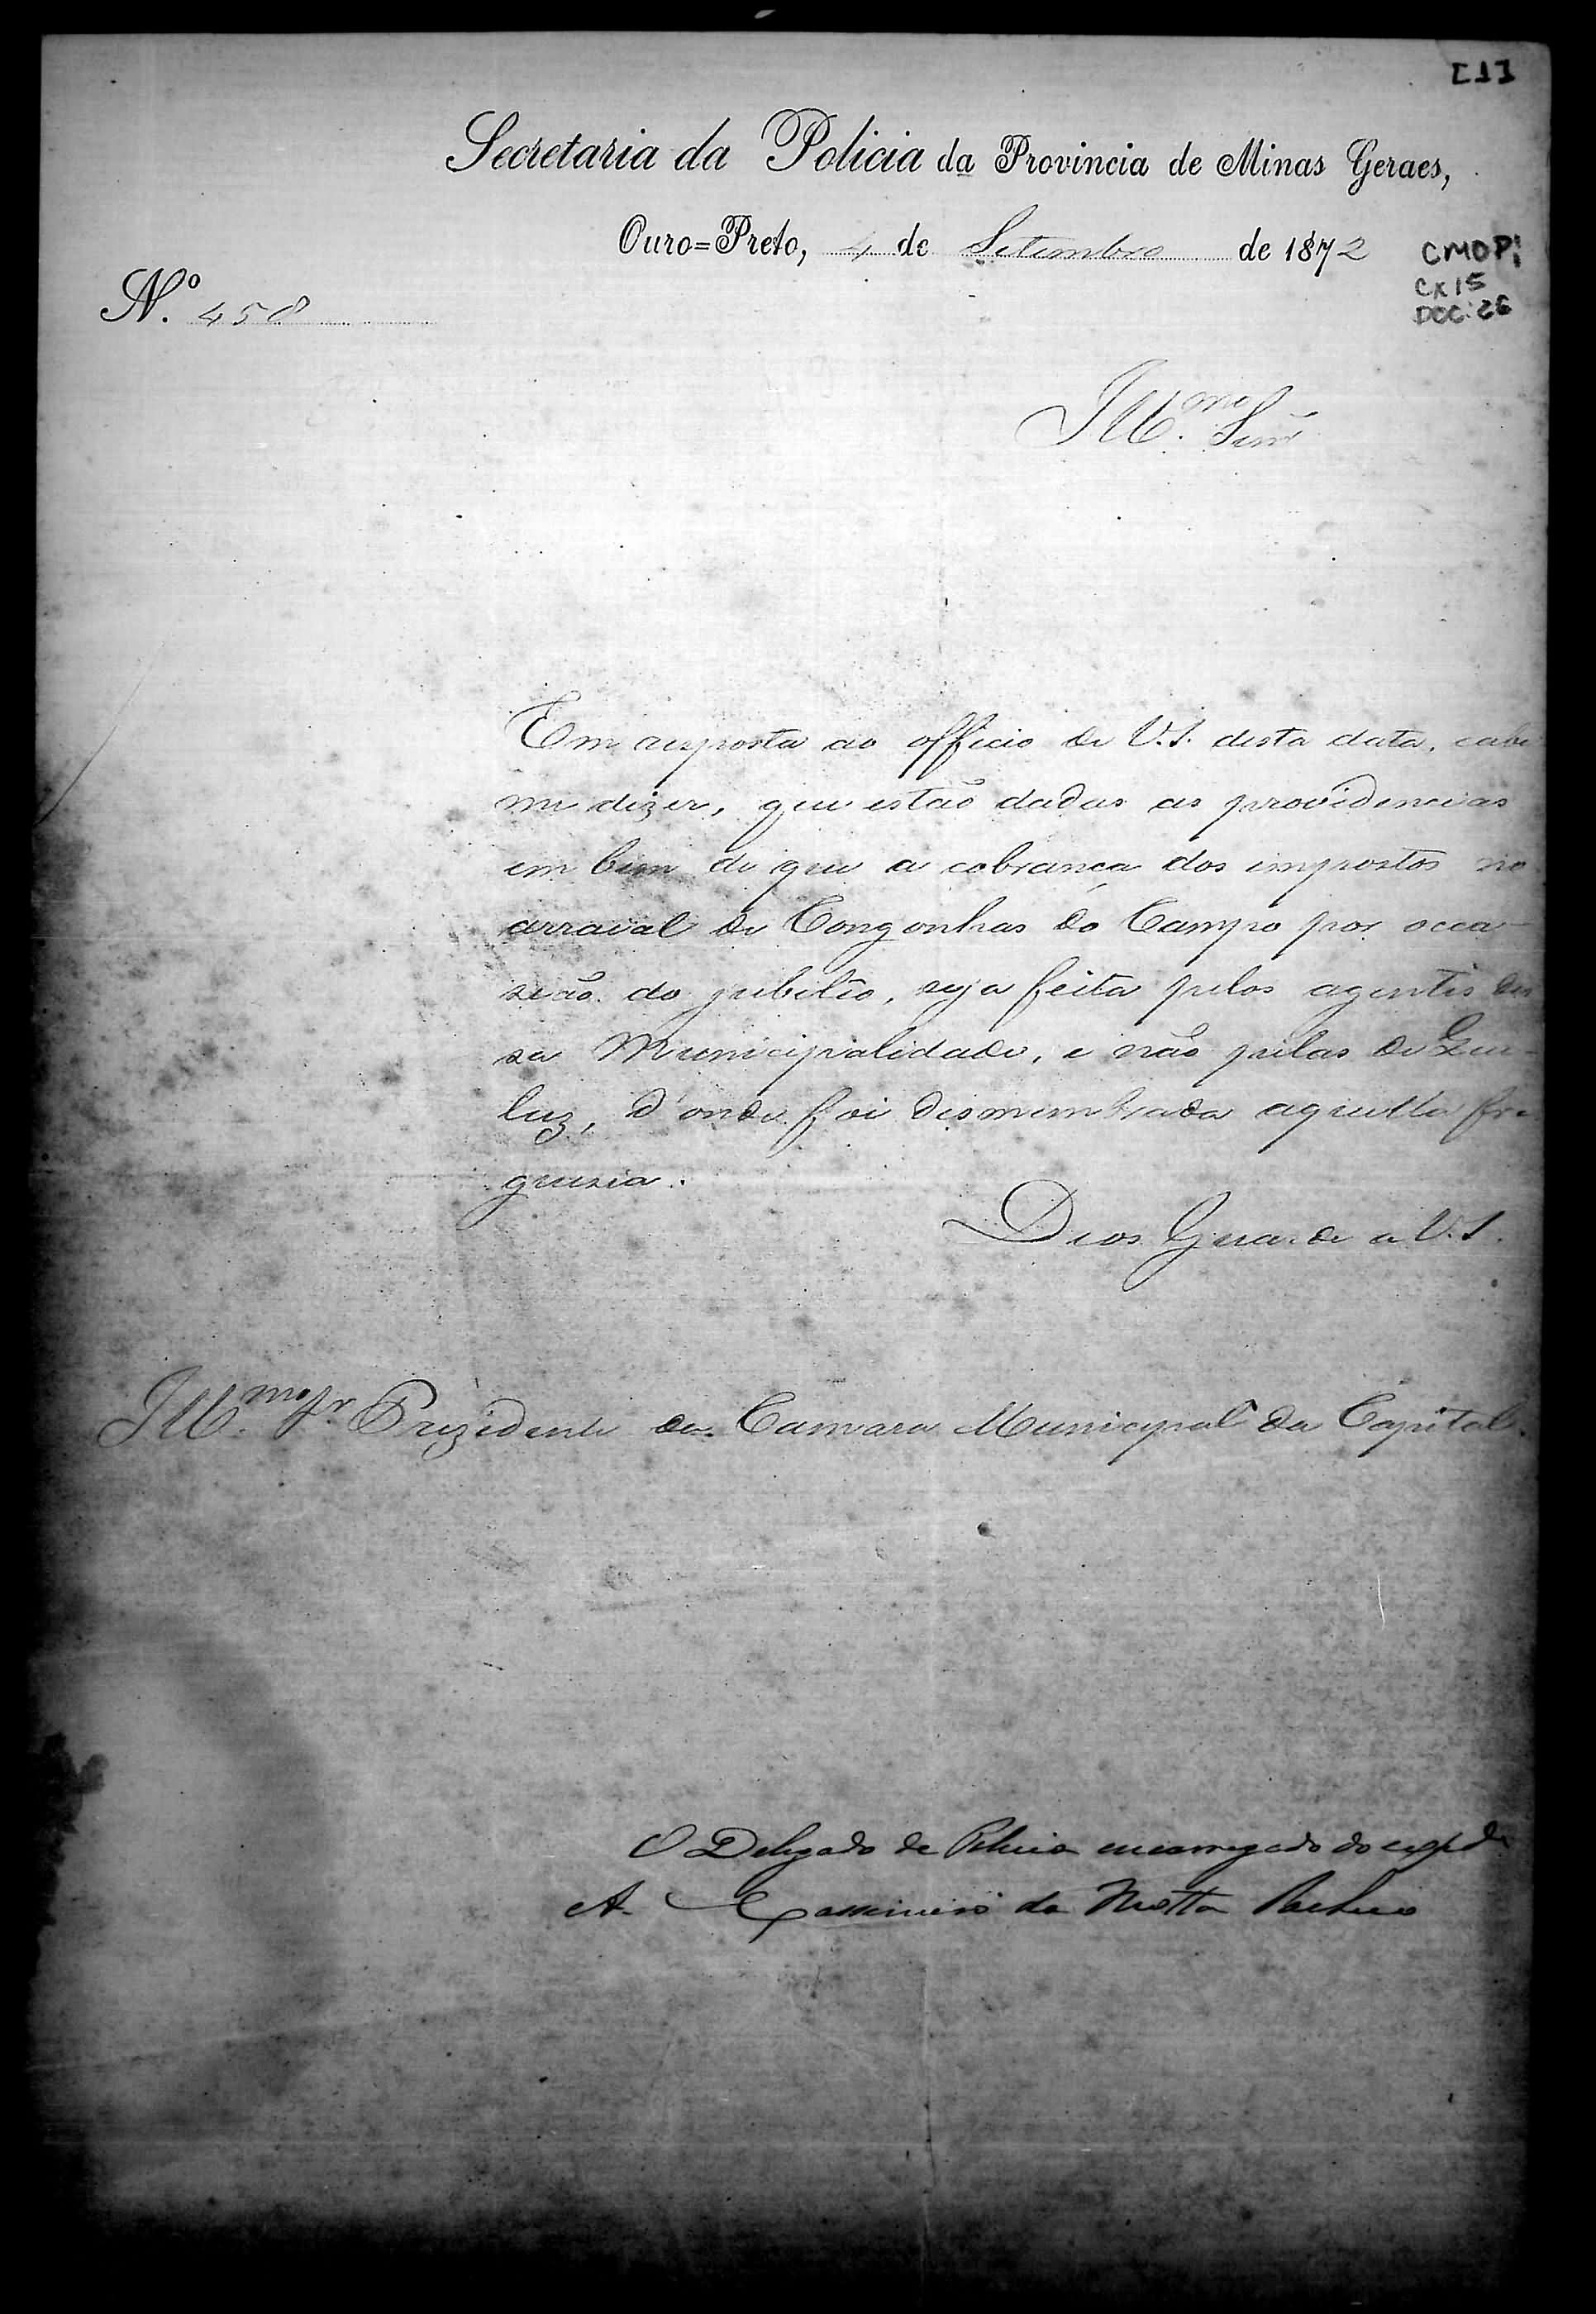 [1]
Secretaria da Policia da Provincia de Minas Geraes,
Ouro=Preto, 4 de Setembro de 1872
CMOP:
CX15
DOC: 26
N.º 458
Ill.mo Senr
Em resposta ao officio de V.S. desta data, cabe
me dizer, que estão dadas as providencias
em bem de que a cobrança dos impostos no
arraial de Congonhas do Campo por occa-
sião do jubilêo, seja feita pelos agentes des
sa Municipalidade, e não pelas de Que-
luz, d'onde foi dismembrada aquella fre
guesia.
Deos Guarde a V.S.
Ill.mo Sr. Prezidente da Camara Municipal da Capital.
O Delegado de Policia encarregado do expede
A. Cassimiro da Motta Pacheco